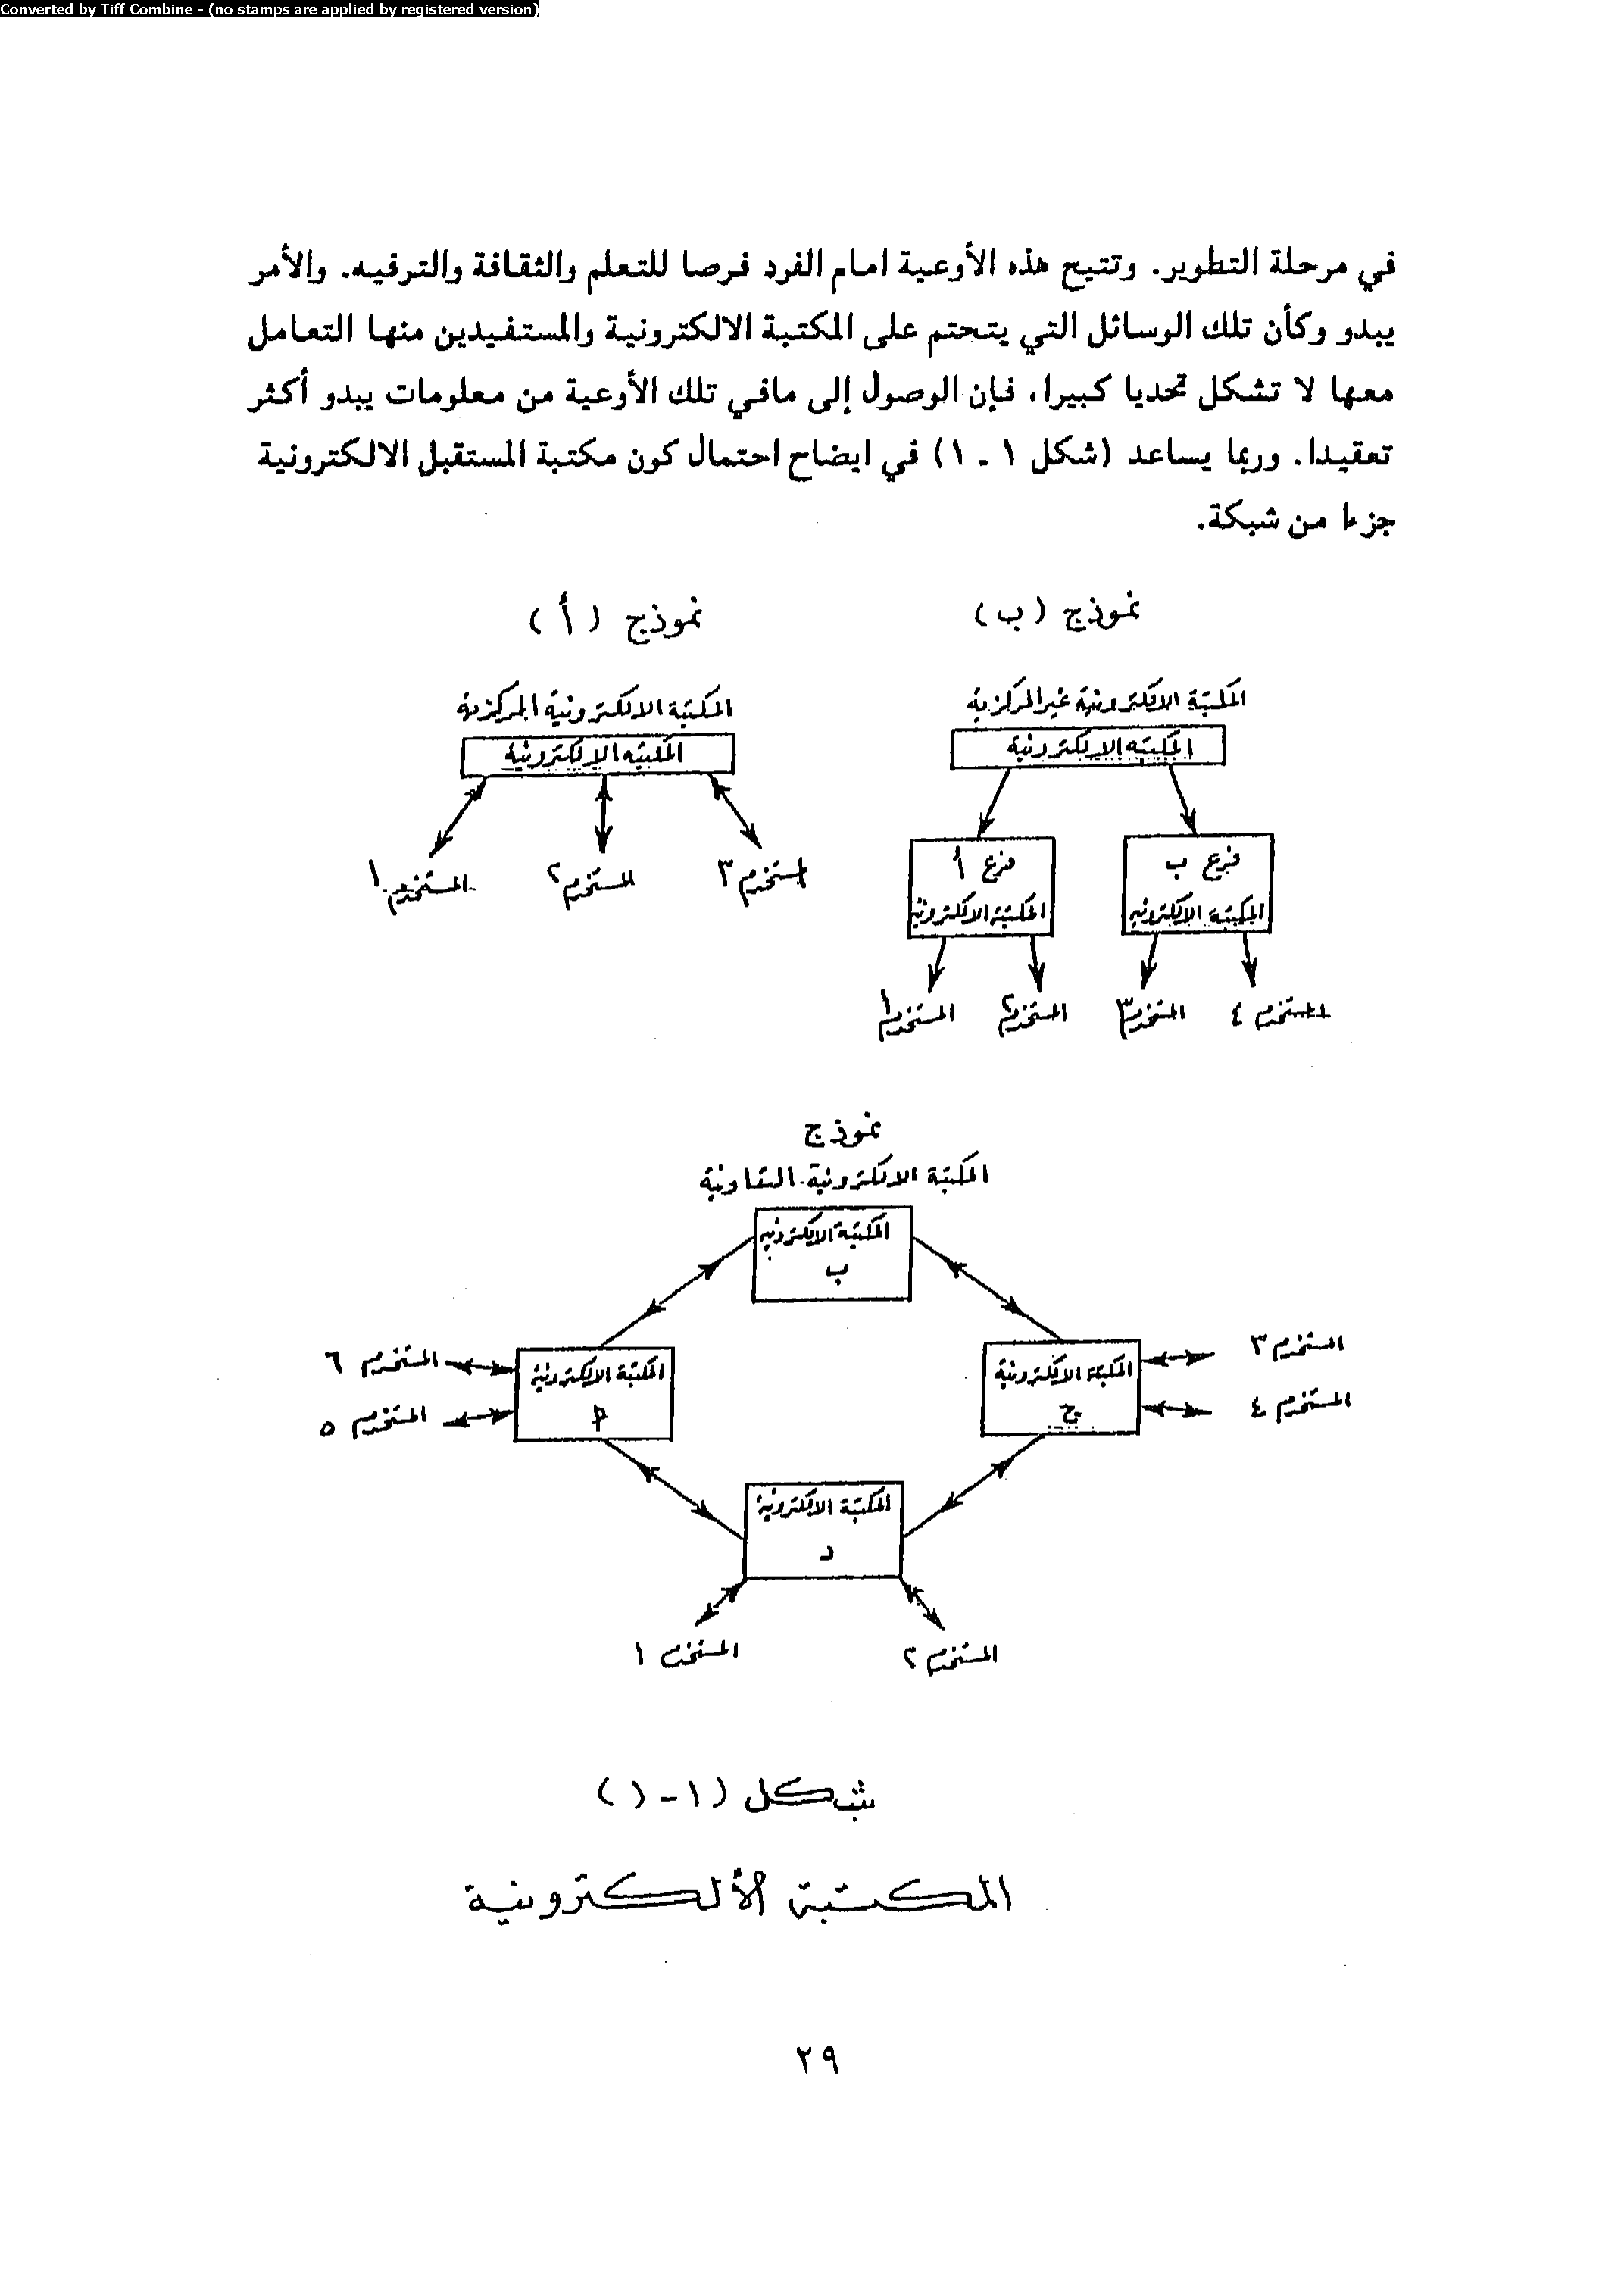 Converted by Tiff Combine - (no stamps are applied by registered version)
في مرحلة التطوير. وتتيح هذه الأوعية امام الفرد فرصا للتعلم والثقافة والترفيه. والأمر
يبدو وكأن تلك الوسائل التي يتحتم على المكتبة الالكترونية والمستفيدين منها التعامل
معها لا تشكل تحديا كبيرا، فإن الوصول إلى مافي تلك الأوعية من معلومات يبدو أكثر
تعقيدا. وربما يساعد (شكل ١ - ١) في ايضاح احتمال كون مكتبة المستقبل الالكترونية
جزءا من شبكة.
نموذج (ب)
المكتبة الالكترونية غير المركزية
المكتبه الالكترونية
فرع أ
المكتبة الالكترونية
فرع ب
المكتبة الالكترونيه
المستخدم ١
المستخدم ٢
المستخدم ٣
المستخدم ٤
نموذج (أ)
المكتبة الالكترونية المركزية
المكتبه الالكترونية
المستخدم ١
المستخدم ٢
المستخدم ٣
نموذج ج
المكتبة الالكترونية التعاونية
المكتبة الالكترونيه
ب
المكتبة الالكترونية
ج
المستخدم ٣
المستخدم ٤
المكتبة الالكترونية
أ
المستخدم ٦
المستخدم ٥
المكتبة الالكترونية
د
المستخدم ١
المستخدم ٢
شكل (١-١)
المكتبة الألكترونية
٢٩